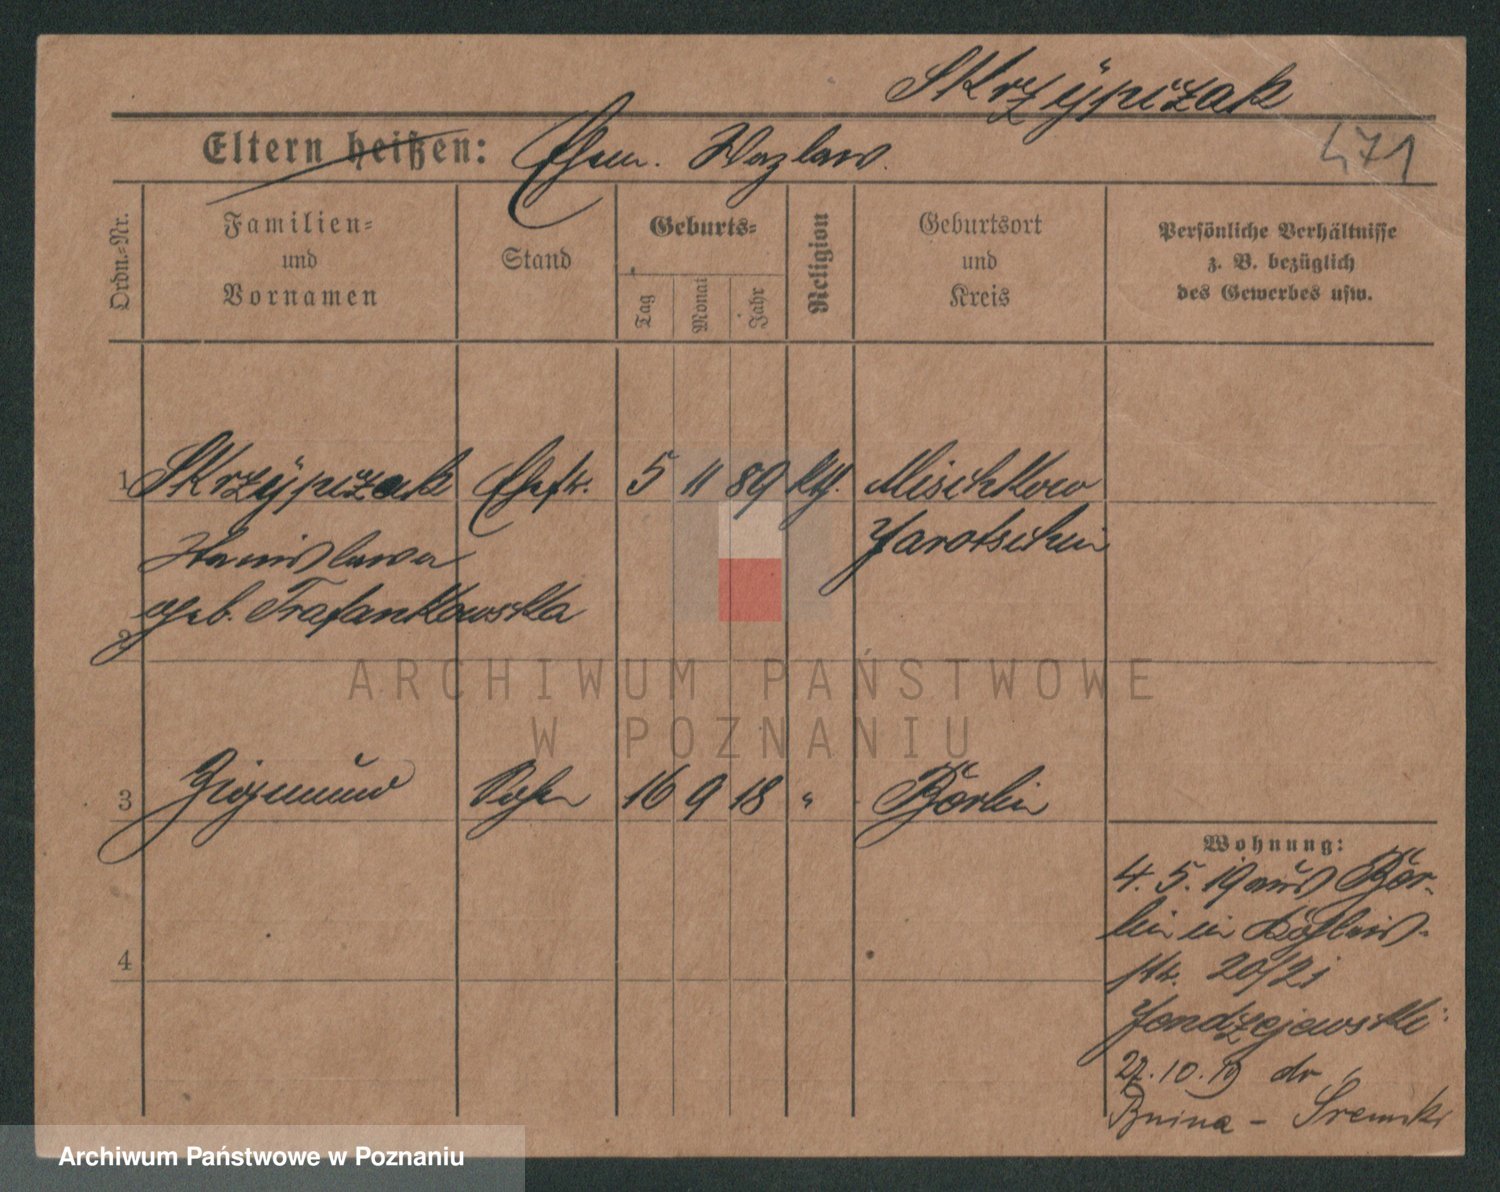 Skrzÿpczak
471
Eltern heißen: Ehem. Wazlaw.
Ordn.-Nr.
Familien-
und
Vornamen
Stand
Geburts-
Tag
Monat
Jahr
Religion
Geburtsort
und
Kreis
Persönliche Verhältnisse
z. B. bezüglich
des Gewerbes usw.
1 Skrzÿpczak Ehefr. 5 11 89 kth. Mischkow
Stanislawa Jarotschin
geb. Trafankowska
2
ARCHIWUM PAŃSTWOWE
W POZNANIU
3 Zigmund Sohn 16 9 18 " Berlin
4
Wohnung:
4. 5. 19 aus Ber-
lin in
str. 20/21
27. 10. 19 do
Bnina - Śremski
Archiwum Państwowe w Poznaniu